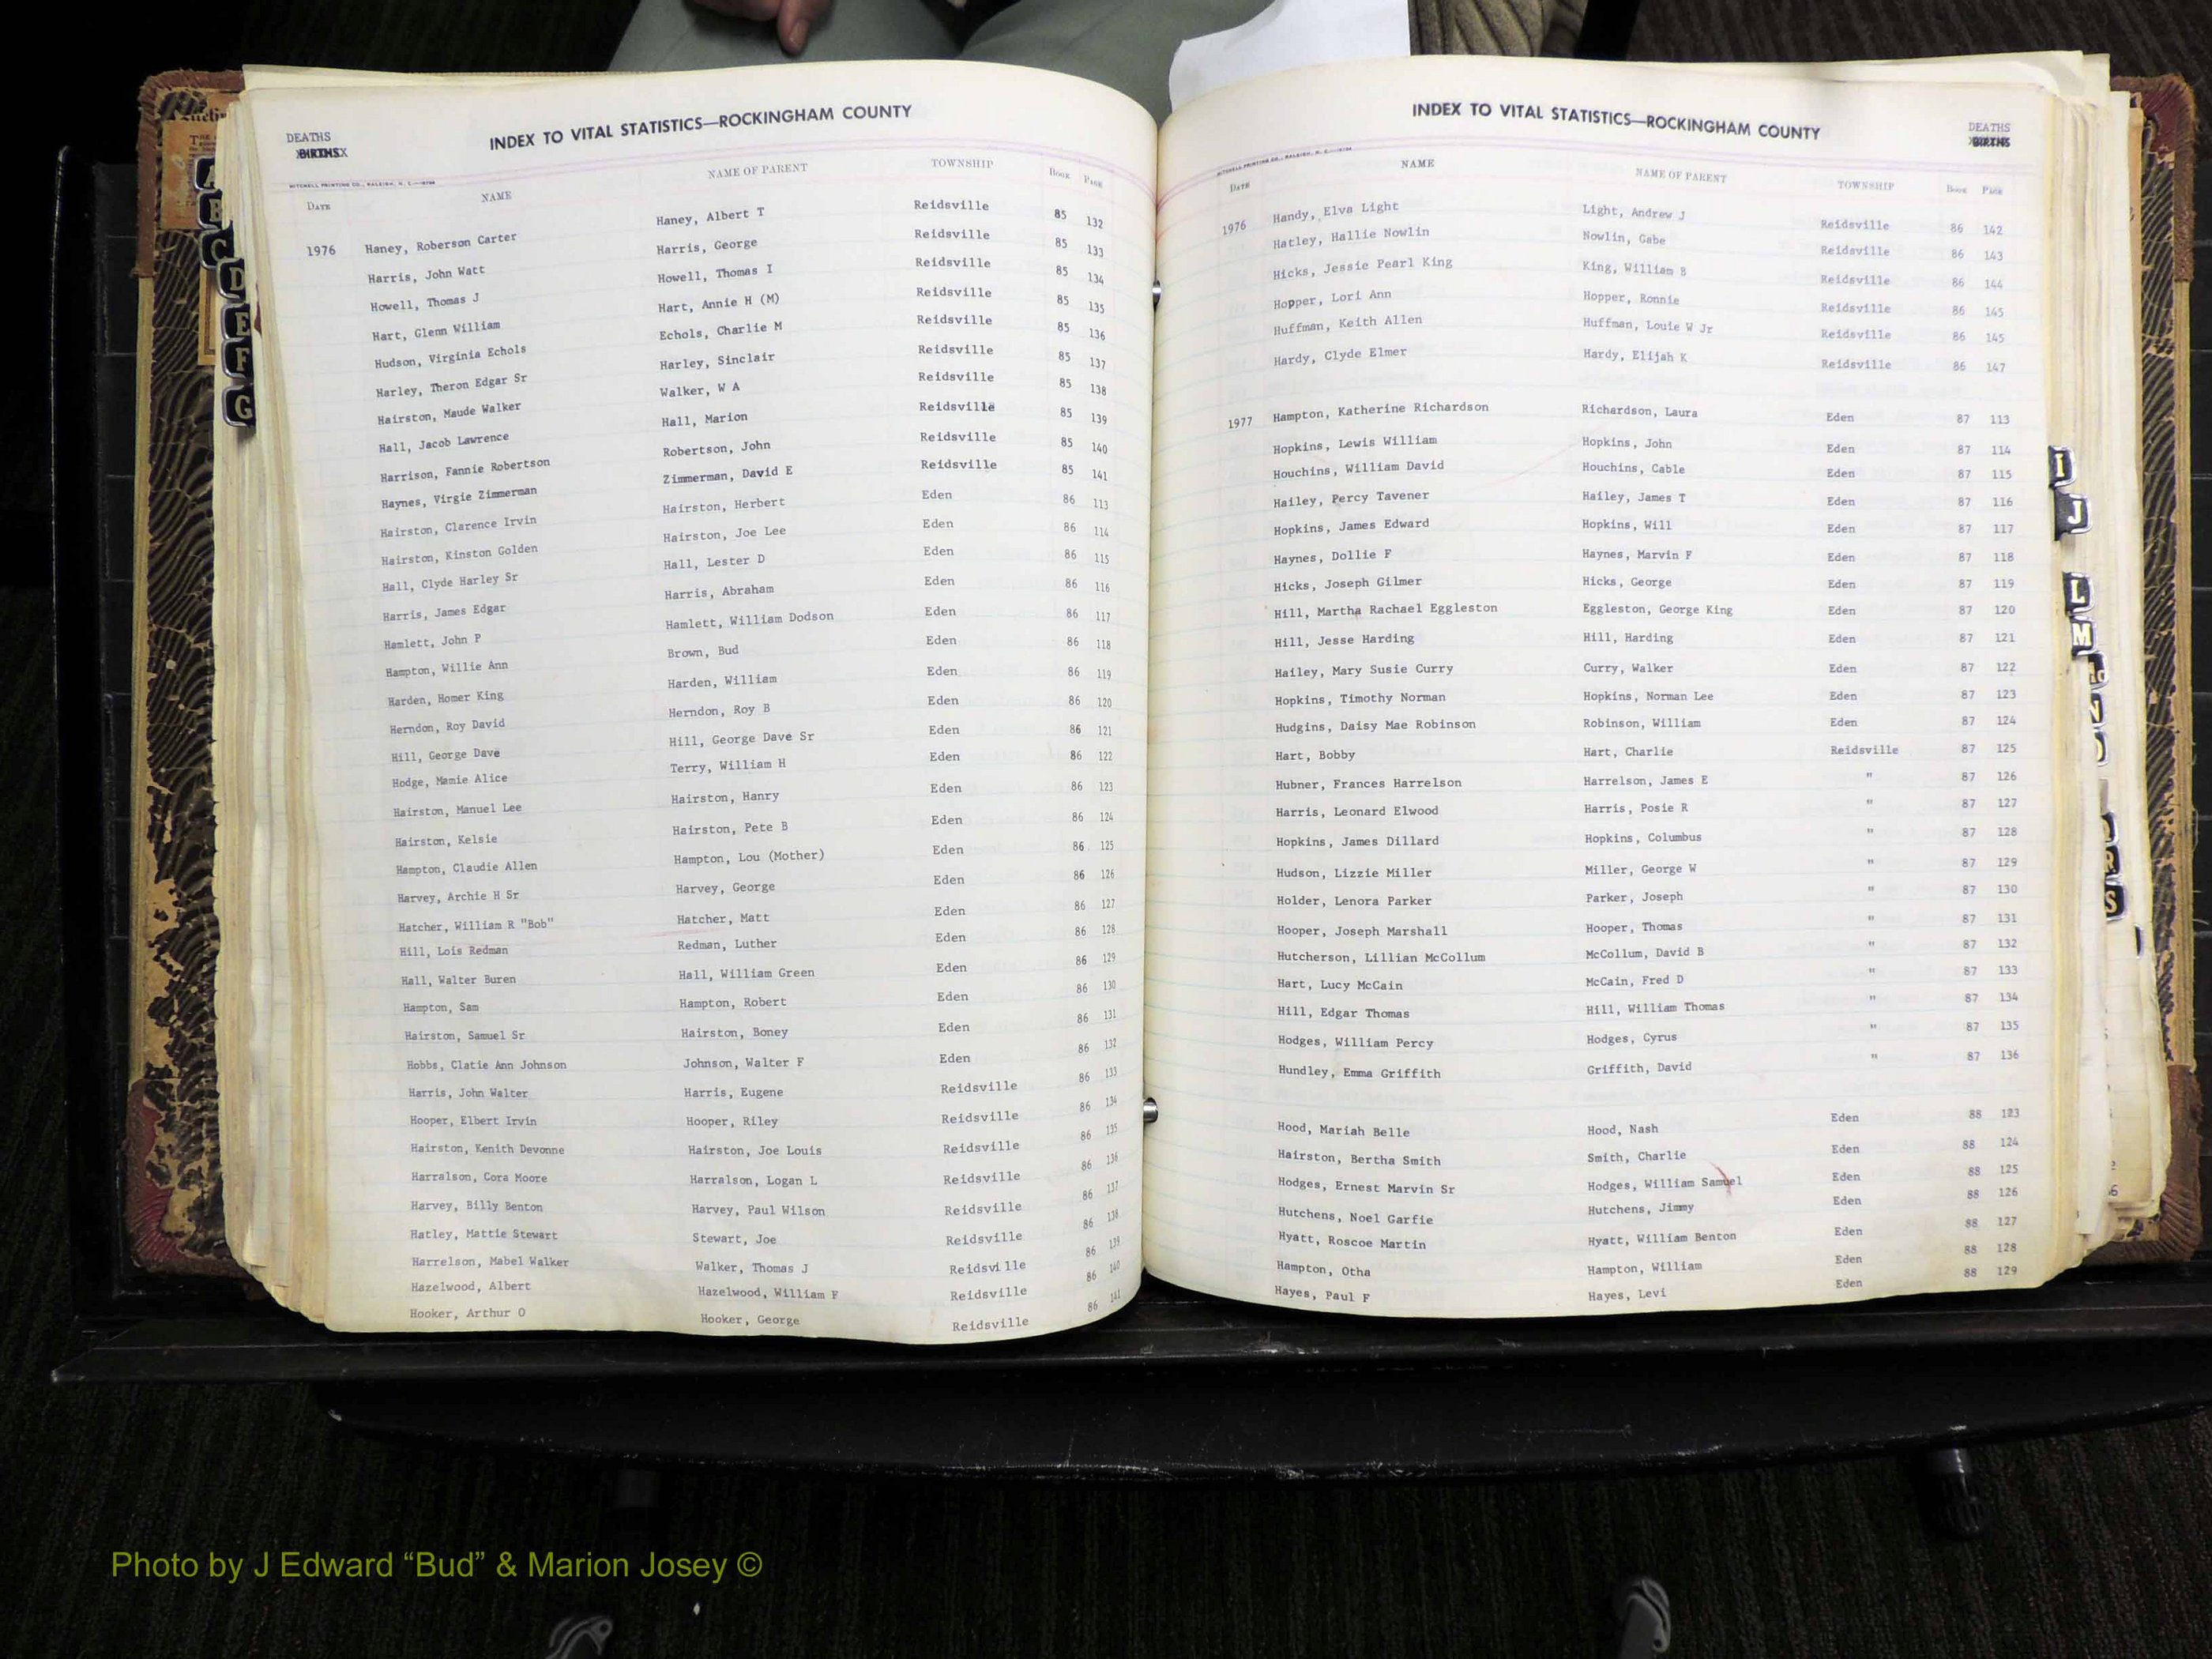 DEATHS
BIRTHS
INDEX TO VITAL STATISTICS—ROCKINGHAM COUNTY
MITCHELL PRINTING CO., RALEIGH, N. C.
DATE NAME NAME OF PARENT TOWNSHIP BOOK PAGE
1976 Haney, Roberson Carter Haney, Albert T Reidsville 85 132
Harris, John Watt Harris, George Reidsville 85 133
Howell, Thomas J Howell, Thomas I Reidsville 85 134
Hart, Glenn William Hart, Annie H (M) Reidsville 85 135
Hudson, Virginia Echols Echols, Charlie M Reidsville 85 136
Harley, Theron Edgar Sr Harley, Sinclair Reidsville 85 137
Hairston, Maude Walker Walker, W A Reidsville 85 138
Hall, Jacob Lawrence Hall, Marion Reidsville 85 139
Harrison, Fannie Robertson Robertson, John Reidsville 85 140
Haynes, Virgie Zimmerman Zimmerman, David E Reidsville 85 141
Hairston, Clarence Irvin Hairston, Herbert Eden 86 113
Hairston, Kinston Golden Hairston, Joe Lee Eden 86 114
Hall, Clyde Harley Sr Hall, Lester D Eden 86 115
Harris, James Edgar Harris, Abraham Eden 86 116
Hamlett, John P Hamlett, William Dodson Eden 86 117
Hampton, Willie Ann Brown, Bud Eden 86 118
Harden, Homer King Harden, William Eden 86 119
Herndon, Roy David Herndon, Roy B Eden 86 120
Hill, George Dave Hill, George Dave Sr Eden 86 121
Hodge, Mamie Alice Terry, William H Eden 86 122
Hairston, Manuel Lee Hairston, Hanry Eden 86 123
Hairston, Kelsie Hairston, Pete B Eden 86 124
Hampton, Claudie Allen Hampton, Lou (Mother) Eden 86 125
Harvey, Archie H Sr Harvey, George Eden 86 126
Hatcher, William R "Bob" Hatcher, Matt Eden 86 127
Hill, Lois Redman Redman, Luther Eden 86 128
Hall, Walter Buren Hall, William Green Eden 86 129
Hampton, Sam Hampton, Robert Eden 86 130
Hairston, Samuel Sr Hairston, Boney Eden 86 131
Hobbs, Clatie Ann Johnson Johnson, Walter F Eden 86 132
Harris, John Walter Harris, Eugene Reidsville 86 133
Hooper, Elbert Irvin Hooper, Riley Reidsville 86 134
Hairston, Kenith Devonne Hairston, Joe Louis Reidsville 86 135
Harralson, Cora Moore Harralson, Logan L Reidsville 86 136
Harvey, Billy Benton Harvey, Paul Wilson Reidsville 86 137
Hatley, Mattie Stewart Stewart, Joe Reidsville 86 138
Harrelson, Mabel Walker Walker, Thomas J Reidsville 86 139
Hazelwood, Albert Hazelwood, William F Reidsville 86 140
Hooker, Arthur O Hooker, George Reidsville 86 141
INDEX TO VITAL STATISTICS—ROCKINGHAM COUNTY
DEATHS
BIRTHS
MITCHELL PRINTING CO., RALEIGH, N. C.
DATE NAME NAME OF PARENT TOWNSHIP BOOK PAGE
1976 Handy, Elva Light Light, Andrew J Reidsville 86 142
Hatley, Hallie Nowlin Nowlin, Gabe Reidsville 86 143
Hicks, Jessie Pearl King King, William B Reidsville 86 144
Hopper, Lori Ann Hopper, Ronnie Reidsville 86 145
Huffman, Keith Allen Huffman, Louie W Jr Reidsville 86 145
Hardy, Clyde Elmer Hardy, Elijah K Reidsville 86 147
1977 Hampton, Katherine Richardson Richardson, Laura Eden 87 113
Hopkins, Lewis William Hopkins, John Eden 87 114
Houchins, William David Houchins, Cable Eden 87 115
Hailey, Percy Tavener Hailey, James T Eden 87 116
Hopkins, James Edward Hopkins, Will Eden 87 117
Haynes, Dollie F Haynes, Marvin F Eden 87 118
Hicks, Joseph Gilmer Hicks, George Eden 87 119
Hill, Martha Rachael Eggleston Eggleston, George King Eden 87 120
Hill, Jesse Harding Hill, Harding Eden 87 121
Hailey, Mary Susie Curry Curry, Walker Eden 87 122
Hopkins, Timothy Norman Hopkins, Norman Lee Eden 87 123
Hudgins, Daisy Mae Robinson Robinson, William Eden 87 124
Hart, Bobby Hart, Charlie Reidsville 87 125
Hubner, Frances Harrelson Harrelson, James E " 87 126
Harris, Leonard Elwood Harris, Posie R " 87 127
Hopkins, James Dillard Hopkins, Columbus " 87 128
Hudson, Lizzie Miller Miller, George W " 87 129
Holder, Lenora Parker Parker, Joseph " 87 130
Hooper, Joseph Marshall Hooper, Thomas " 87 131
Hutcherson, Lillian McCollum McCollum, David B " 87 132
Hart, Lucy McCain McCain, Fred D " 87 133
Hill, Edgar Thomas Hill, William Thomas " 87 134
Hodges, William Percy Hodges, Cyrus " 87 135
Hundley, Emma Griffith Griffith, David " 87 136
Hood, Mariah Belle Hood, Nash Eden 88 123
Hairston, Bertha Smith Smith, Charlie Eden 88 124
Hodges, Ernest Marvin Sr Hodges, William Samuel Eden 88 125
Hutchens, Noel Garfie Hutchens, Jimmy Eden 88 126
Hyatt, Roscoe Martin Hyatt, William Benton Eden 88 127
Hampton, Otha Hampton, William Eden 88 128
Hayes, Paul F Hayes, Levi Eden 88 129
A
B
C
D
E
F
G
I
J
L
M
N
R
S
Photo by J Edward “Bud” & Marion Josey ©